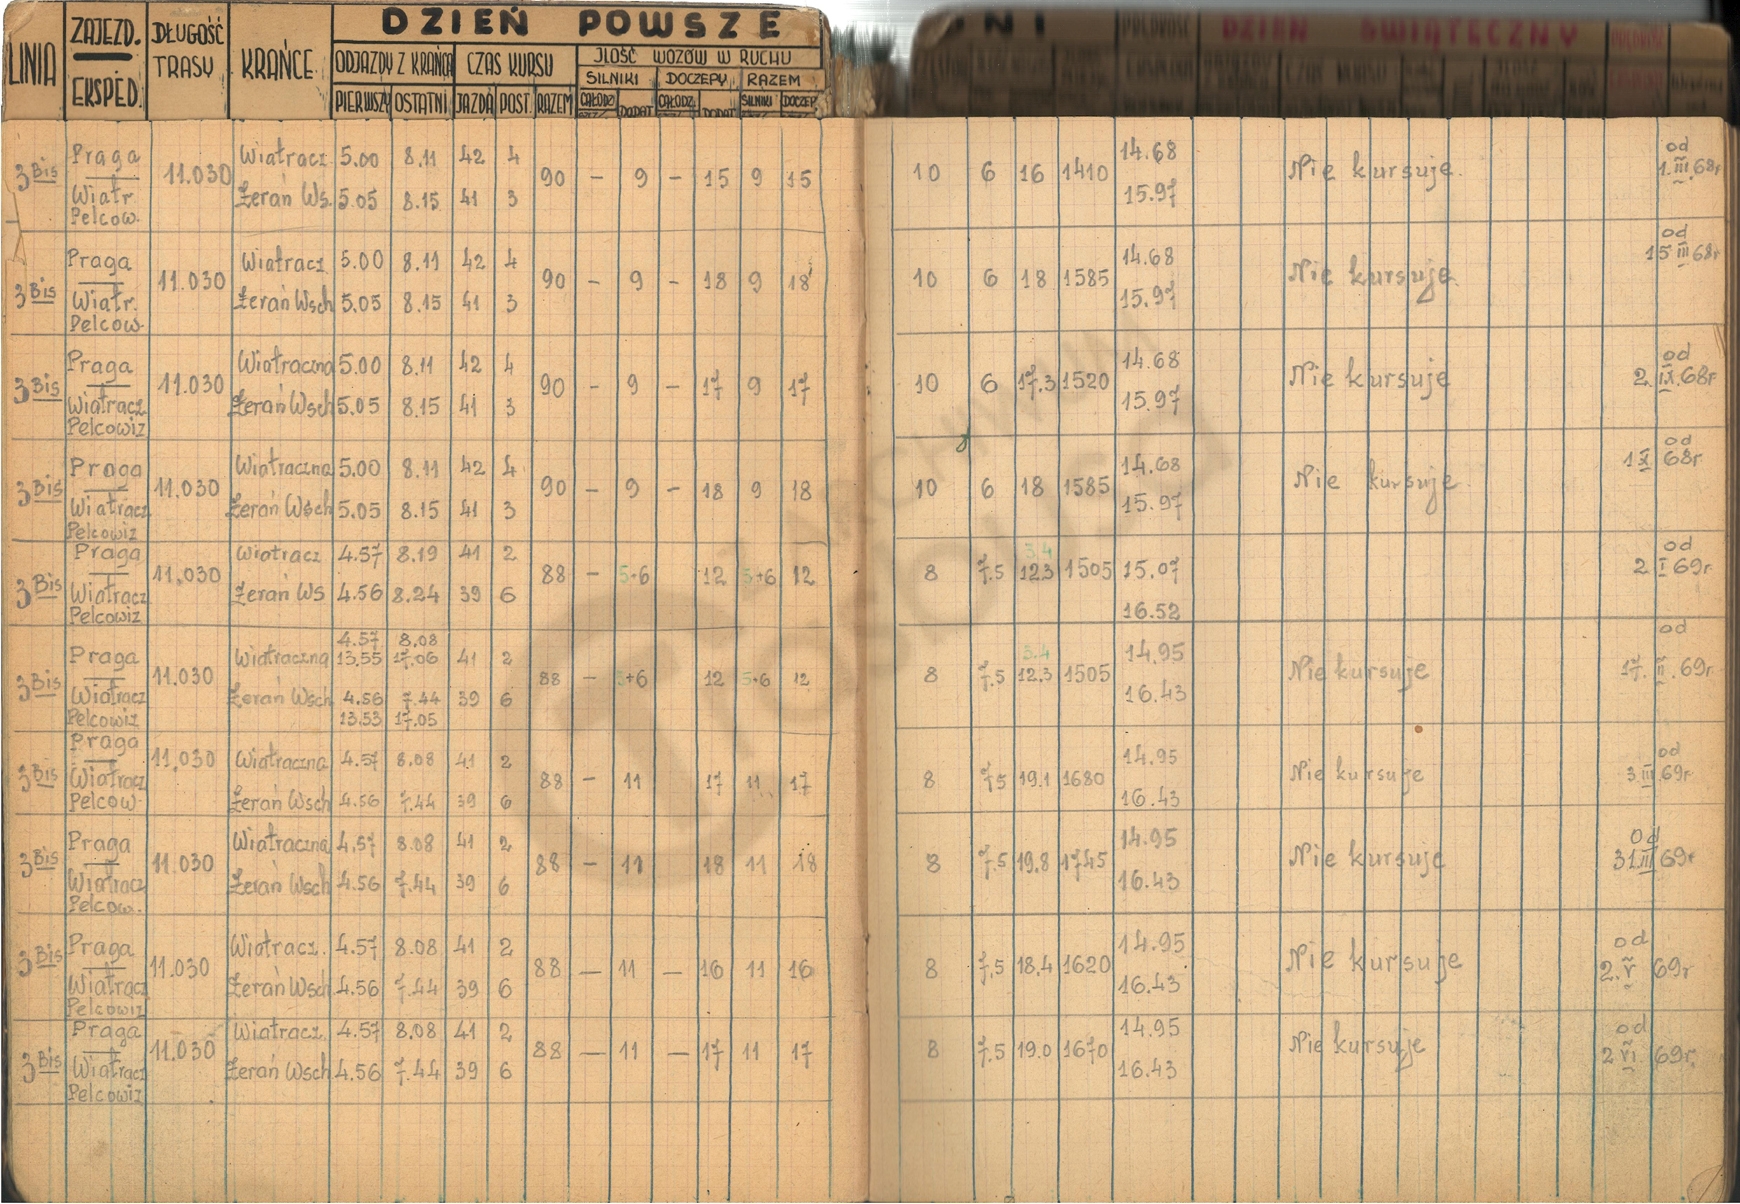 DZIEŃ POWSZE
LINIA ZAJEZD. EKSPED. DŁUGOŚĆ TRASY KRAŃCE ODJAZDY Z KRAŃCA CZAS KURSU JLOŚĆ WOZÓW W RUCHU
SILNIKI DOCZEPY RAZEM
PIERWSZY OSTATNI JAZDA POST. RAZEM CAŁODZ DODAT CAŁODZ DODAT SILNIKI DOCZEP.
NI DZIEŃ ŚWIĄTECZNY
3 Bis Praga 11.030 Wiatracz 5.00 8.11 42 4 90 – 9 – 15 9 15 10 6 16 1410 14.68 Nie kursuje. od 1.III.68r
Wiatr. Pelcow. Żerań Ws. 5.05 8.15 41 3 15.97
3 Bis Praga 11.030 Wiatracz 5.00 8.11 42 4 90 – 9 – 18 9 18 10 6 18 1585 14.68 Nie kursuje. od 15 III 68r
Wiatr. Pelcow. Żerań Wsch 5.05 8.15 41 3 15.97
3 Bis Praga 11.030 Wiatraczna 5.00 8.11 42 4 90 – 9 – 17 9 17 10 6 17.3 1520 14.68 Nie kursuje od 2.IX.68r
Wiatracz. Pelcowiz Żerań Wsch 5.05 8.15 41 3 15.97
3 Bis Praga 11.030 Wiatraczna 5.00 8.11 42 4 90 – 9 – 18 9 18 10 6 18 1585 14.68 Nie kursuje. od 1 X 68r
Wiatracz Pelcowiz Żerań Wsch 5.05 8.15 41 3 15.97
3 Bis Praga 11.030 Wiatracz 4.57 8.19 41 2 88 – 5+6 12 5+6 12 8 7.5 3.4 12.3 1505 15.07 od 2 I 69r
Wiatracz Pelcowiz Żerań Ws 4.56 8.24 39 6 16.52
3 Bis Praga 11.030 Wiatraczna 4.57 8.08 13.55 17.06 41 2 88 – 5+6 12 5+6 12 8 7.5 3.4 12.3 1505 14.95 Nie kursuje od 17. II. 69r
Wiatracz Pelcowiz Żerań Wsch 4.56 7.44 13.53 17.05 39 6 16.43
3 Bis Praga 11.030 Wiatraczna 4.57 8.08 41 2 88 – 11 17 11 17 8 7.5 19.1 1680 14.95 Nie kursuje od 3 III 69r
Wiatracz Pelcow. Żerań Wsch 4.56 7.44 39 6 16.43
3 Bis Praga 11.030 Wiatraczna 4.57 8.08 41 2 88 – 11 18 11 18 8 7.5 19.8 1745 14.95 Nie kursuje Od 31.III 69r
Wiatracz Pelcow. Żerań Wsch 4.56 7.44 39 6 16.43
3 Bis Praga 11.030 Wiatracz. 4.57 8.08 41 2 88 — 11 — 16 11 16 8 7.5 18.4 1620 14.95 Nie kursuje od 2.V 69r
Wiatracz Pelcowiz Żerań Wsch 4.56 7.44 39 6 16.43
3 Bis Praga 11.030 Wiatracz. 4.57 8.08 41 2 88 — 11 — 17 11 17 8 7.5 19.0 1670 14.95 Nie kursuje od 2 VI. 69r.
Wiatracz Pelcowiz Żerań Wsch 4.56 7.44 39 6 16.43